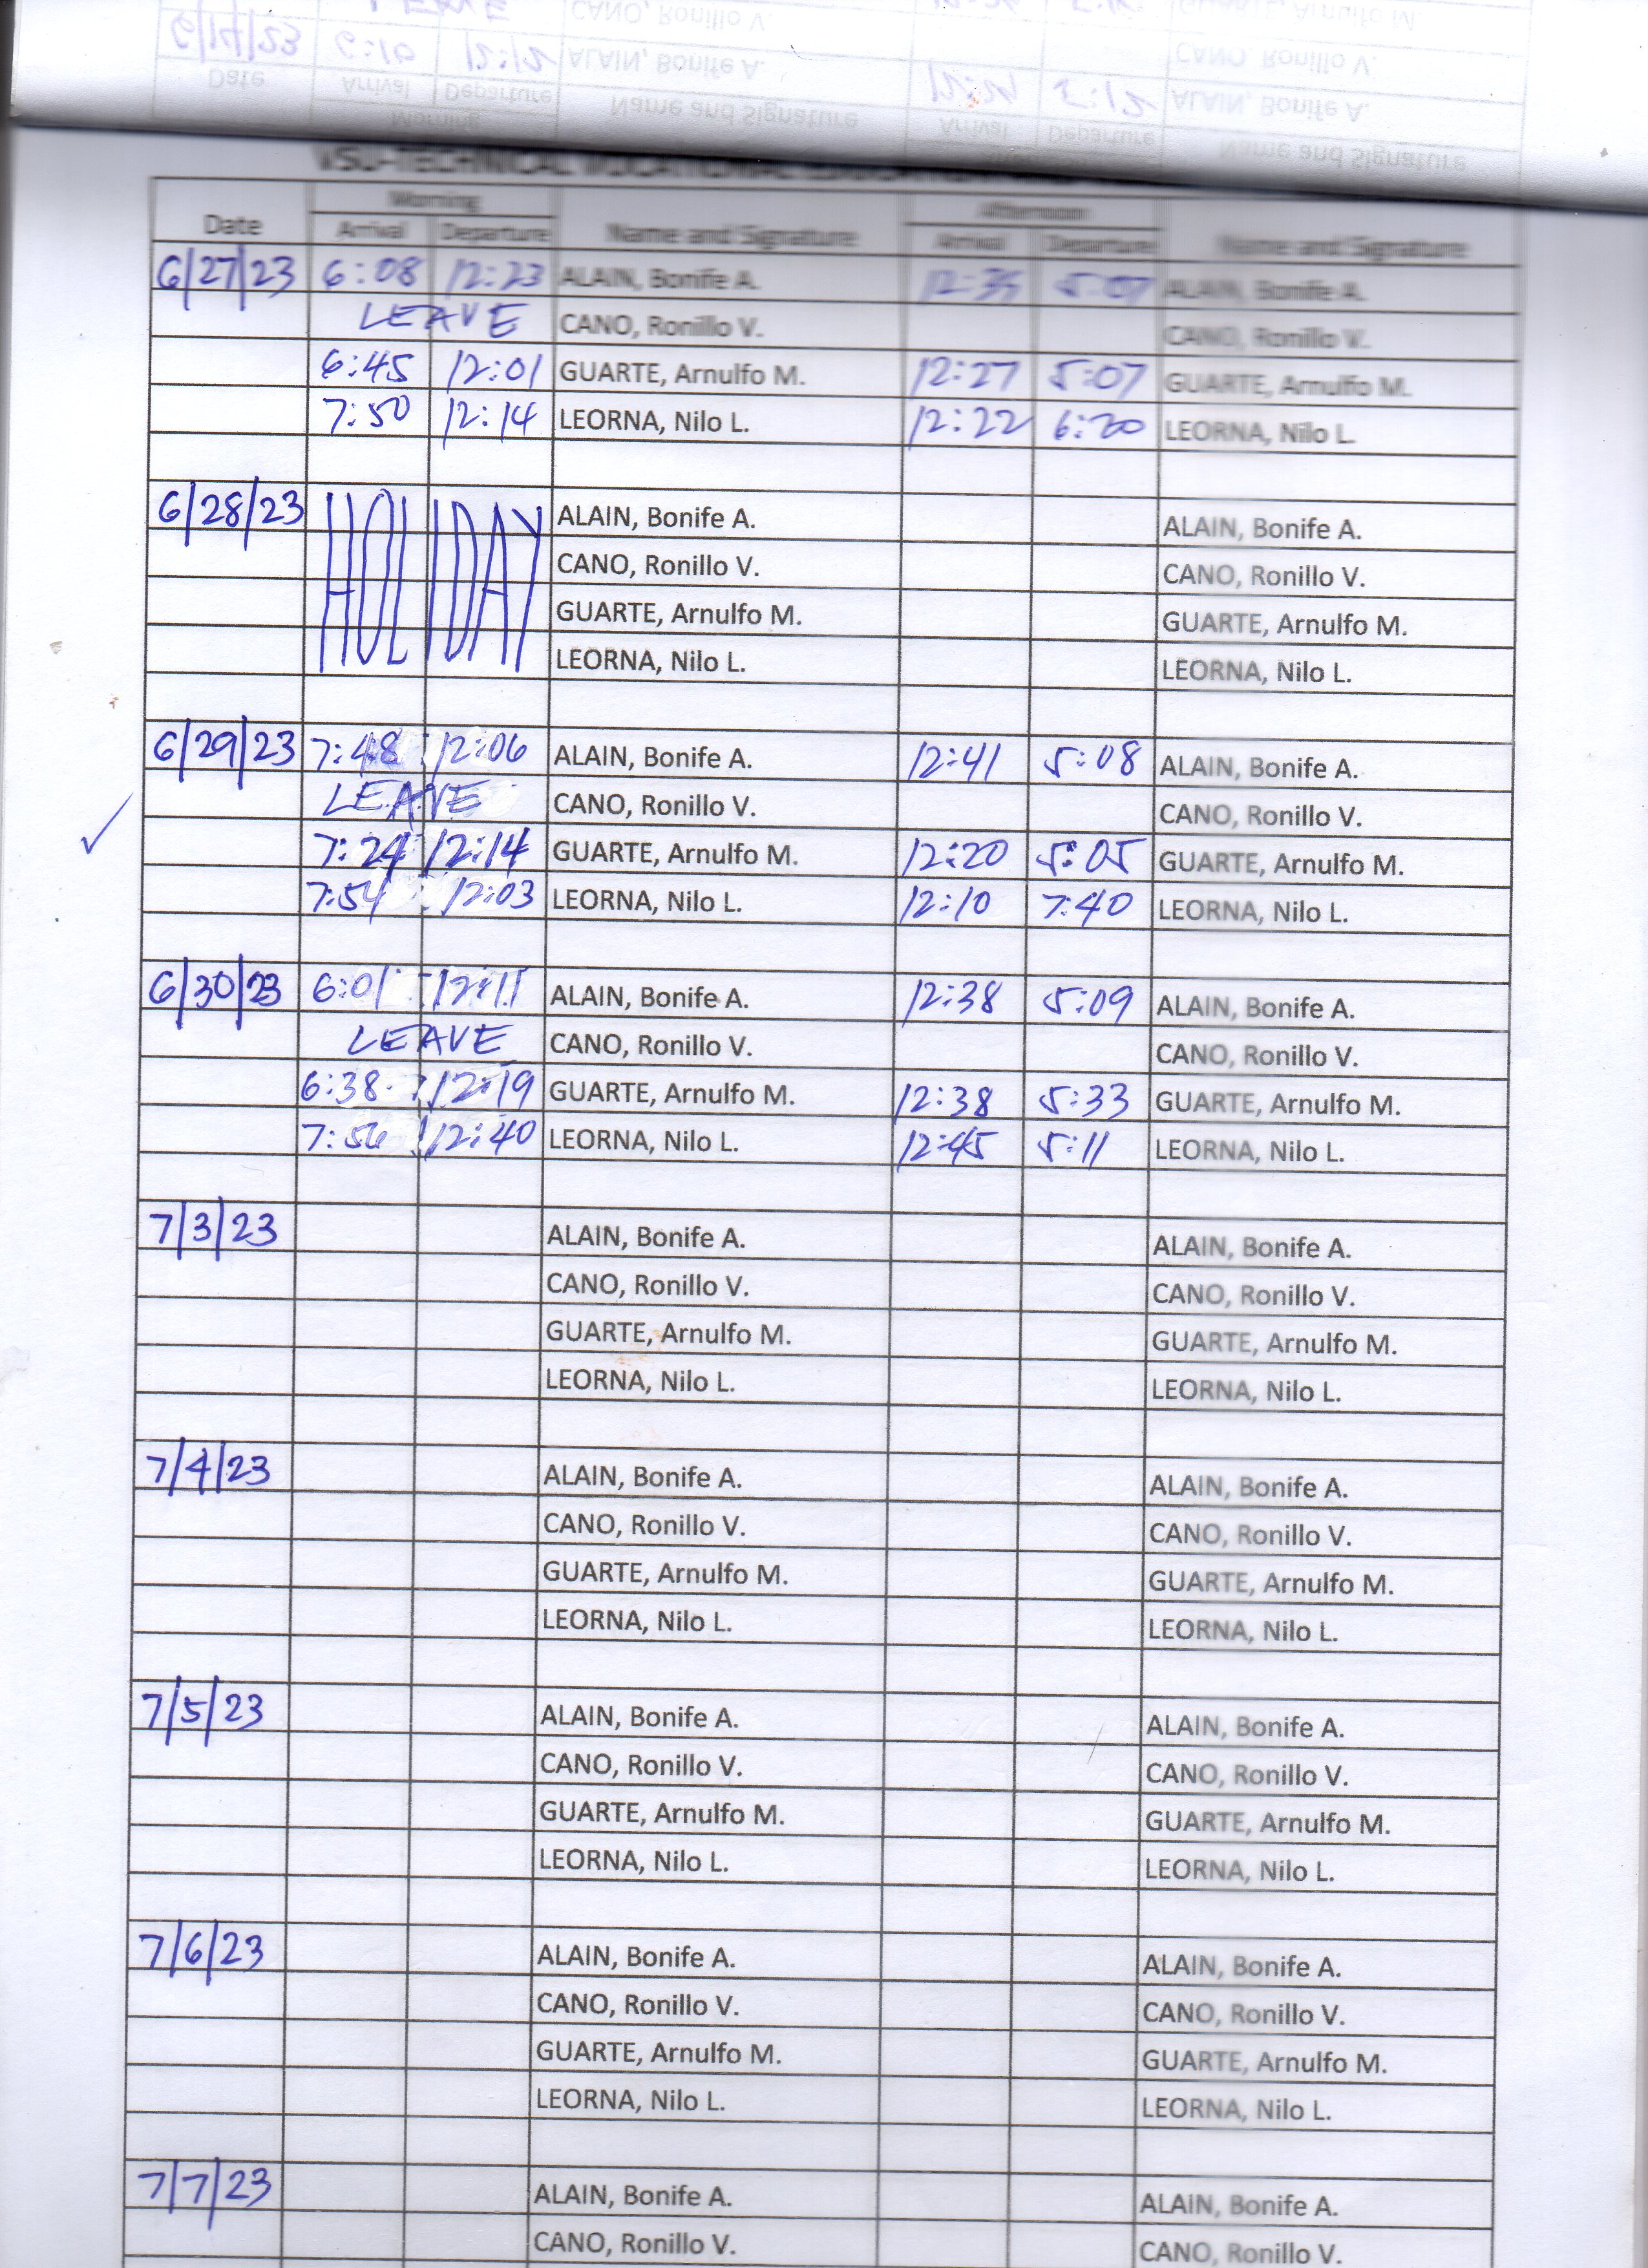 VSU-TECHNICAL VOCATIONAL
Morning Afternoon
Date Arrival Departure Name and Signature Arrival Departure Name and Signature
6/27/23 6:08 12:23 ALAIN, Bonife A. 12:35 5:07 ALAIN, Bonife A.
LEAVE CANO, Ronillo V. CANO, Ronillo V.
6:45 12:01 GUARTE, Arnulfo M. 12:27 5:07 GUARTE, Arnulfo M.
7:50 12:14 LEORNA, Nilo L. 12:22 6:20 LEORNA, Nilo L.
6/28/23 HOLIDAY ALAIN, Bonife A. ALAIN, Bonife A.
CANO, Ronillo V. CANO, Ronillo V.
GUARTE, Arnulfo M. GUARTE, Arnulfo M.
LEORNA, Nilo L. LEORNA, Nilo L.
6/29/23 7:48 12:06 ALAIN, Bonife A. 12:41 5:08 ALAIN, Bonife A.
LEAVE CANO, Ronillo V. CANO, Ronillo V.
7:24 12:14 GUARTE, Arnulfo M. 12:20 5:05 GUARTE, Arnulfo M.
7:54 12:03 LEORNA, Nilo L. 12:10 7:40 LEORNA, Nilo L.
6/30/23 6:01 12:11 ALAIN, Bonife A. 12:38 5:09 ALAIN, Bonife A.
LEAVE CANO, Ronillo V. CANO, Ronillo V.
6:38 12:19 GUARTE, Arnulfo M. 12:38 5:33 GUARTE, Arnulfo M.
7:56 12:40 LEORNA, Nilo L. 12:45 5:11 LEORNA, Nilo L.
7/3/23 ALAIN, Bonife A. ALAIN, Bonife A.
CANO, Ronillo V. CANO, Ronillo V.
GUARTE, Arnulfo M. GUARTE, Arnulfo M.
LEORNA, Nilo L. LEORNA, Nilo L.
7/4/23 ALAIN, Bonife A. ALAIN, Bonife A.
CANO, Ronillo V. CANO, Ronillo V.
GUARTE, Arnulfo M. GUARTE, Arnulfo M.
LEORNA, Nilo L. LEORNA, Nilo L.
7/5/23 ALAIN, Bonife A. ALAIN, Bonife A.
CANO, Ronillo V. CANO, Ronillo V.
GUARTE, Arnulfo M. GUARTE, Arnulfo M.
LEORNA, Nilo L. LEORNA, Nilo L.
7/6/23 ALAIN, Bonife A. ALAIN, Bonife A.
CANO, Ronillo V. CANO, Ronillo V.
GUARTE, Arnulfo M. GUARTE, Arnulfo M.
LEORNA, Nilo L. LEORNA, Nilo L.
7/7/23 ALAIN, Bonife A. ALAIN, Bonife A.
CANO, Ronillo V. CANO, Ronillo V.